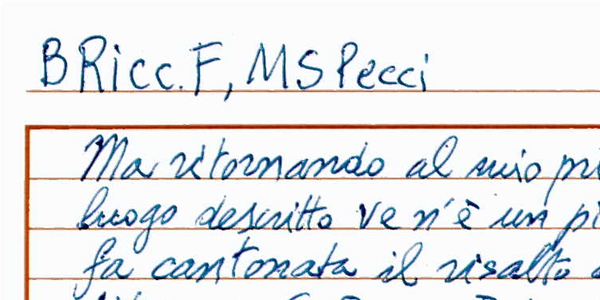 BRicc. F, MS Pecci
Ma ritornando al mio pri
luogo descritto ve n'è un pi
fa cantonata il risalto